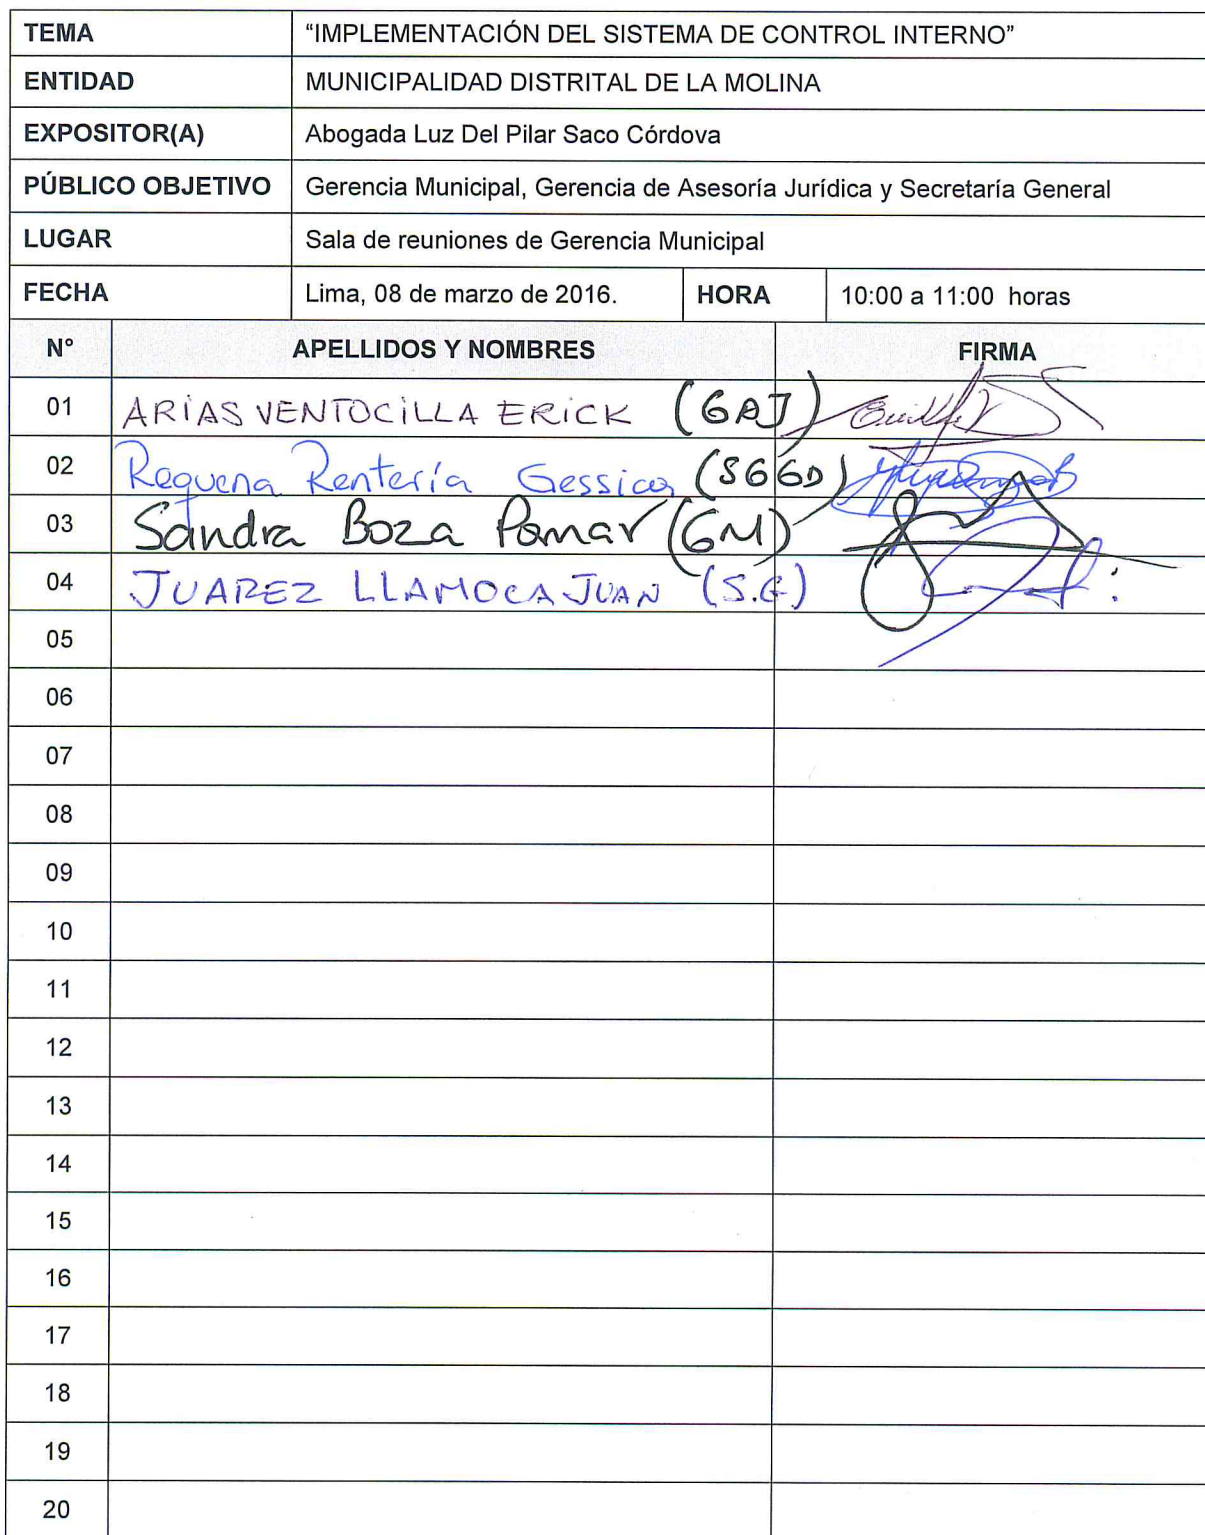 TEMA "IMPLEMENTACIÓN DEL SISTEMA DE CONTROL INTERNO"
ENTIDAD MUNICIPALIDAD DISTRITAL DE LA MOLINA
EXPOSITOR(A) Abogada Luz Del Pilar Saco Córdova
PÚBLICO OBJETIVO Gerencia Municipal, Gerencia de Asesoría Jurídica y Secretaría General
LUGAR Sala de reuniones de Gerencia Municipal
FECHA Lima, 08 de marzo de 2016. HORA 10:00 a 11:00 horas
N° APELLIDOS Y NOMBRES FIRMA
01 ARIAS VENTOCILLA ERICK (GAJ)
02 Requena Rentería Gessica (SGGD)
03 Sandra Boza Pomar (GM)
04 JUAREZ LLAMOCA JUAN (S.G)
05
06
07
08
09
10
11
12
13
14
15
16
17
18
19
20